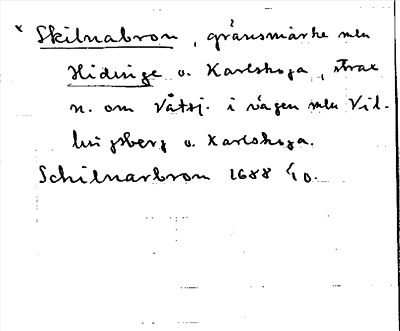 x Skilnabron, gränsmärke mln
Hidinge o. Karlskoga, strax
n. om Våtsj. i vägen mln Vil-
lingsberg o. Karlskoga.
Schilnarbron 1688